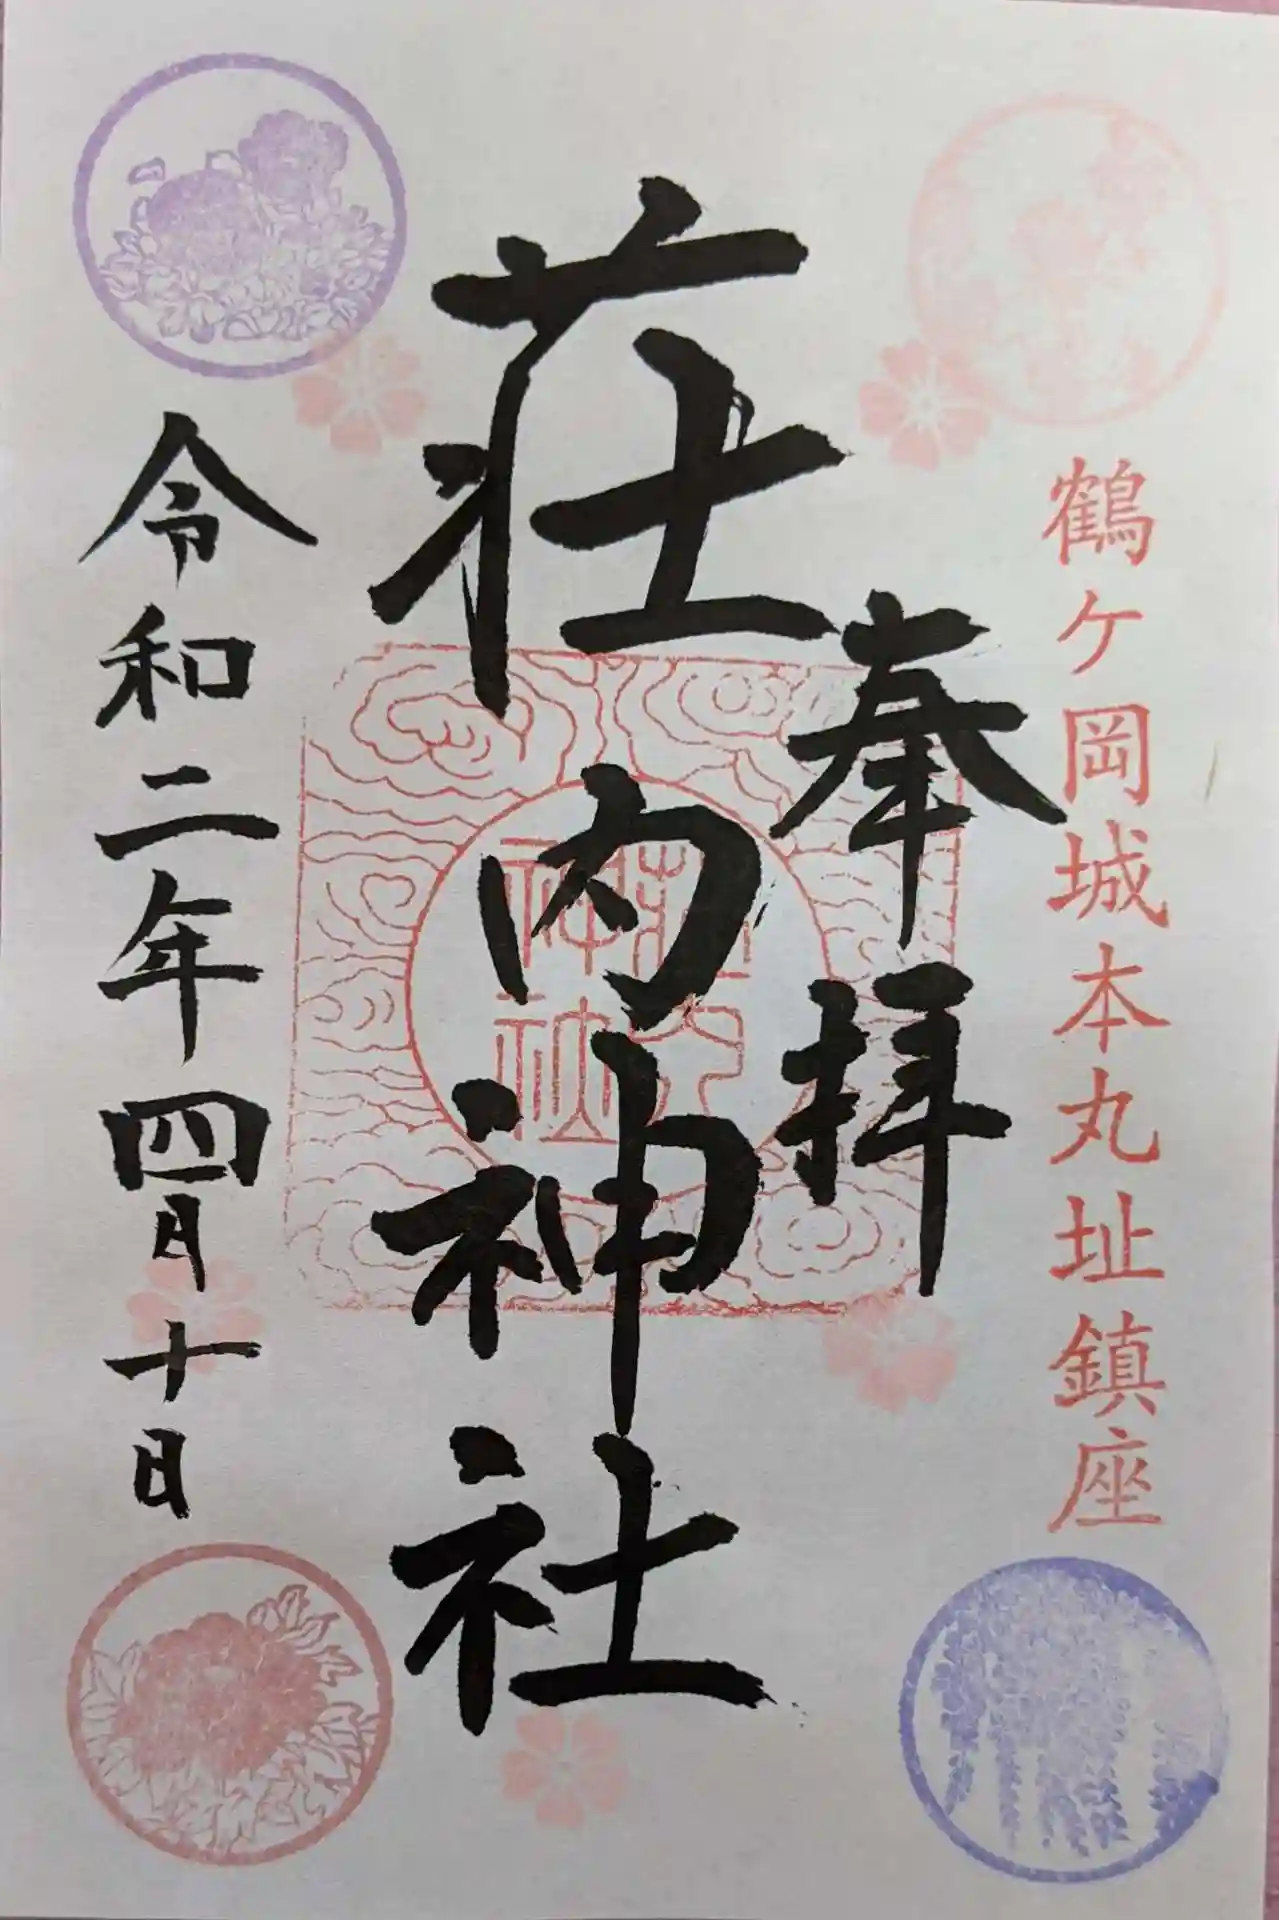 鶴ケ岡城本丸址鎮座
奉拝
荘内神社
荘内
神社
令和二年四月十日